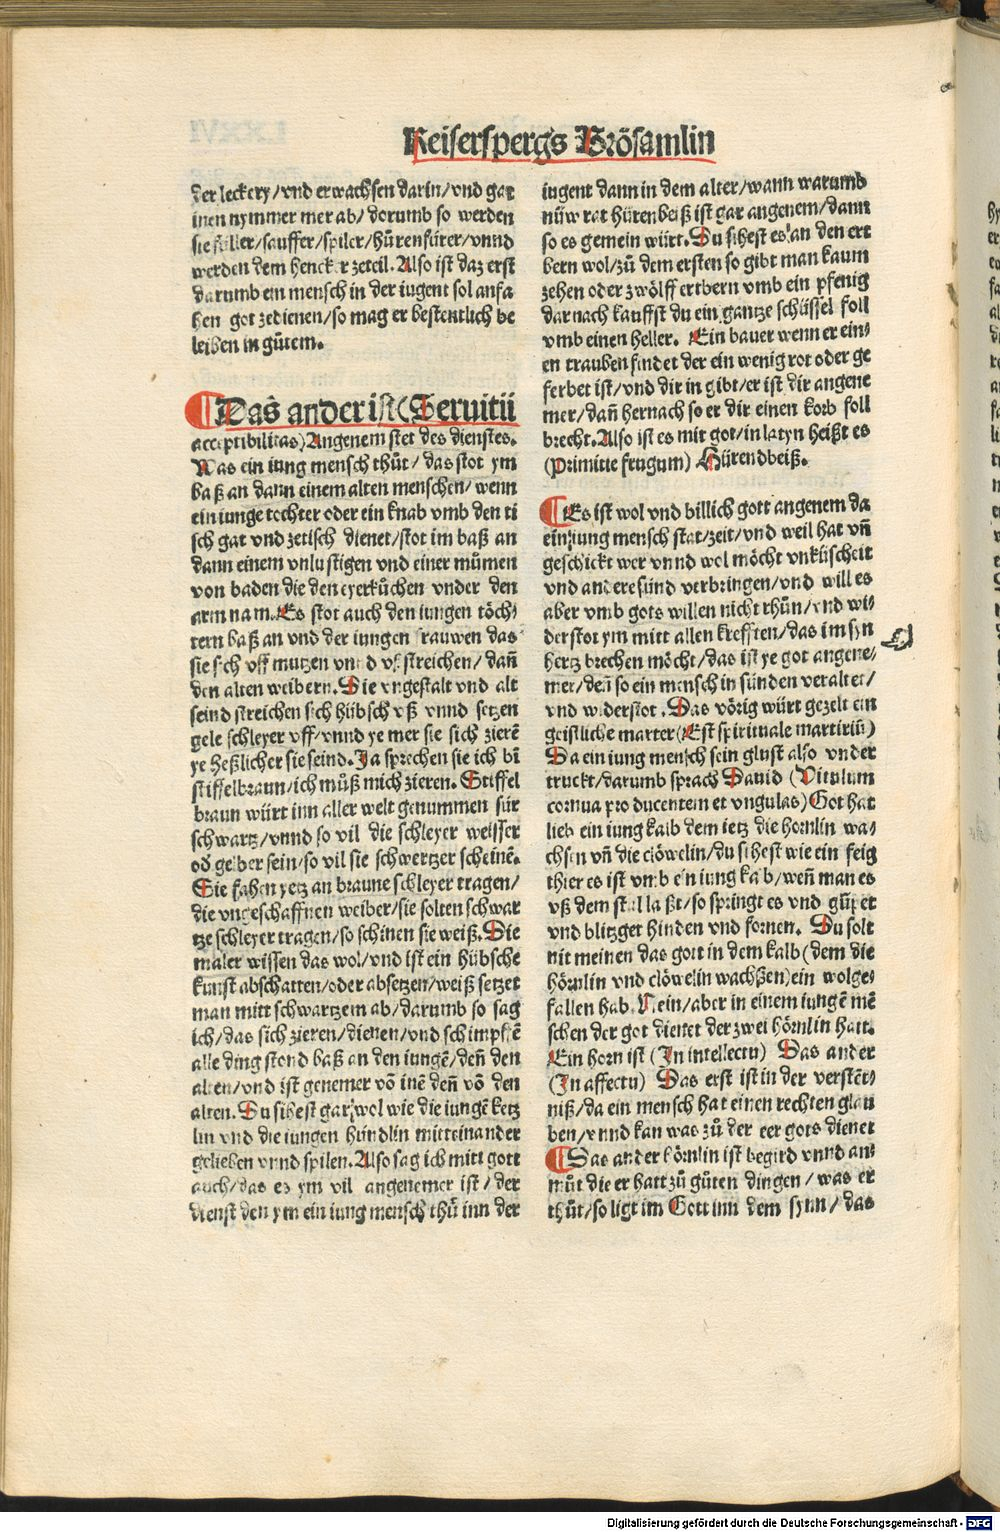 Keiserspergs Brösamlin
der leckery/vnd erwachsen darin/vnd gar
inen nymmer mer ab/dorumb so werden
sie füller/sauffer/spiler/hůrenfürer/vnnd
werden dem hencker zeteil. Also ist daz erst
darumb ein mensch in der iugent sol anfa
hen got zedienen/so mag er bestentlich be
leiben in gůtem.
¶ Das ander ist (Seruitii
acceptibilitas) Angenem stet des dienstes.
Was ein iung mensch thůt/das stot ym
baß an dann einem alten menschen/wenn
ein iunge tochter oder ein knab vmb den ti
sch gat vnd zetisch dienet/stot im baß an
dann einem vnlustigen vnd einer můmen
von baden die den eyerkůchen vnder den
arm nam. Es stot auch den iungen töch⸗
tern baß an vnd der iungen frauwen das
sie sich vff mutzen vnnd vß streichen/dañ
den alten weibern. Die vngestalt vnd alt
seind streichen sich hübsch vß vnnd setzen
gele schleyer vff/vnnd ye mer sie sich zierẽ
ye heßlicher sie seind. Ja sprechen sie ich bĩ
stiffelbraun/ich můß mich zieren. Stiffel
braun würt inn aller welt genummen für
schwartz/vnnd so vil die schleyer weisser
od gelber sein/so vil sie schwertzer scheinẽ.
Sie fahen yetz an braune schleyer tragen/
die vngeschaffnen weiber/sie solten schwar
tze schleyer tragen/so schinen sie weiß. Die
maler wissen das wol/vnd ist ein hübsche
kunst abschatten/oder absetzen/weiß setzet
man mitt schwartzem ab/darumb so sag
ich/das sich zieren/dienen/vnd schimpffẽ
alle ding stond baß an den iungẽ/deñ den
alten/vnd ist genemer võ inẽ deñ võ den
alten. Du sihest gar wol wie die iungẽ ketz
lin vnd die iungen hündlin mitteinander
gelieben vnnd spilen. Also sag ich mitt gott
auch/das es ym vil angenemer ist/der
dienst den ym ein iung mensch thů inn der
iugent dann in dem alter/wann warumb
nüw rat hürenbeiß ist gar angenem/dann
so es gemein würt. Du sihest es an den ert
bern wol/zů dem ersten so gibt man kaum
zehen oder zwölff ertbern vmb ein pfenig
darnach kauffst du ein gantze schüssel foll
vmb einen heller. Ein bauer wenn er ein⸗
en trauben findet der ein wenig rot oder ge
ferbet ist/vnd dir in gibt/er ist dir angene
mer/dañ hernach so er dir einen korb foll
brecht. Also ist es mit got/in latyn heißt es
(Primitie frugum) Hürendbeiß.
¶ Es ist wol vnd billich gott angenem da
ein iung mensch stat/zeit/vnd weil hat vñ
geschickt wer vnnd wol möcht vnküscheit
vnd andere sünd verbringen/vnd will es
aber vmb gots willen nicht thůn/vnd wi⸗
derstot ym mitt allen krefften/das im syn
hertz brechen möcht/das ist ye got angene⸗
mer/deñ so ein mensch in sünden veraltet/
vnd widerstot. Das vörig würt gezelt ein
geistliche marter (Est spirituale martiriũ)
Da ein iung mensch sein glust also vnder
truckt/darumb sprach Dauid (Vitulum
cornua producentem et vngulas) Got hat
lieb ein iung kalb dem ietz die hornlin wa⸗
chsen vñ die clöwelin/du sihest wie ein feig
thier es ist vmb ein iung kalb/weñ man es
vß dem stal laßt/so springt es vnd gumpet
vnd blitzget hinden vnd fornen. Du solt
nit meinen das gott in dem kalb (dem die
hörnlin vnd clöwelin wachßen) ein wolge⸗
fallen hab. Nein/aber in einem iungẽ mẽ
schen der got dienet der zwei hörnlin hatt.
Ein horn ist (In intellectu) Das ander
(In affectu) Das erst ist in der verstẽt⸗
niß/da ein mensch hat einen rechten glau
ben/vnnd kan was zů der eer gots dienet
¶ Das ander hörnlin ist begird vnnd an⸗
můt die er hatt zů gůten dingen/was er
thůt/so ligt im Gott inn dem synn/das
Digitalisierung gefördert durch die Deutsche Forschungsgemeinschaft - DFG